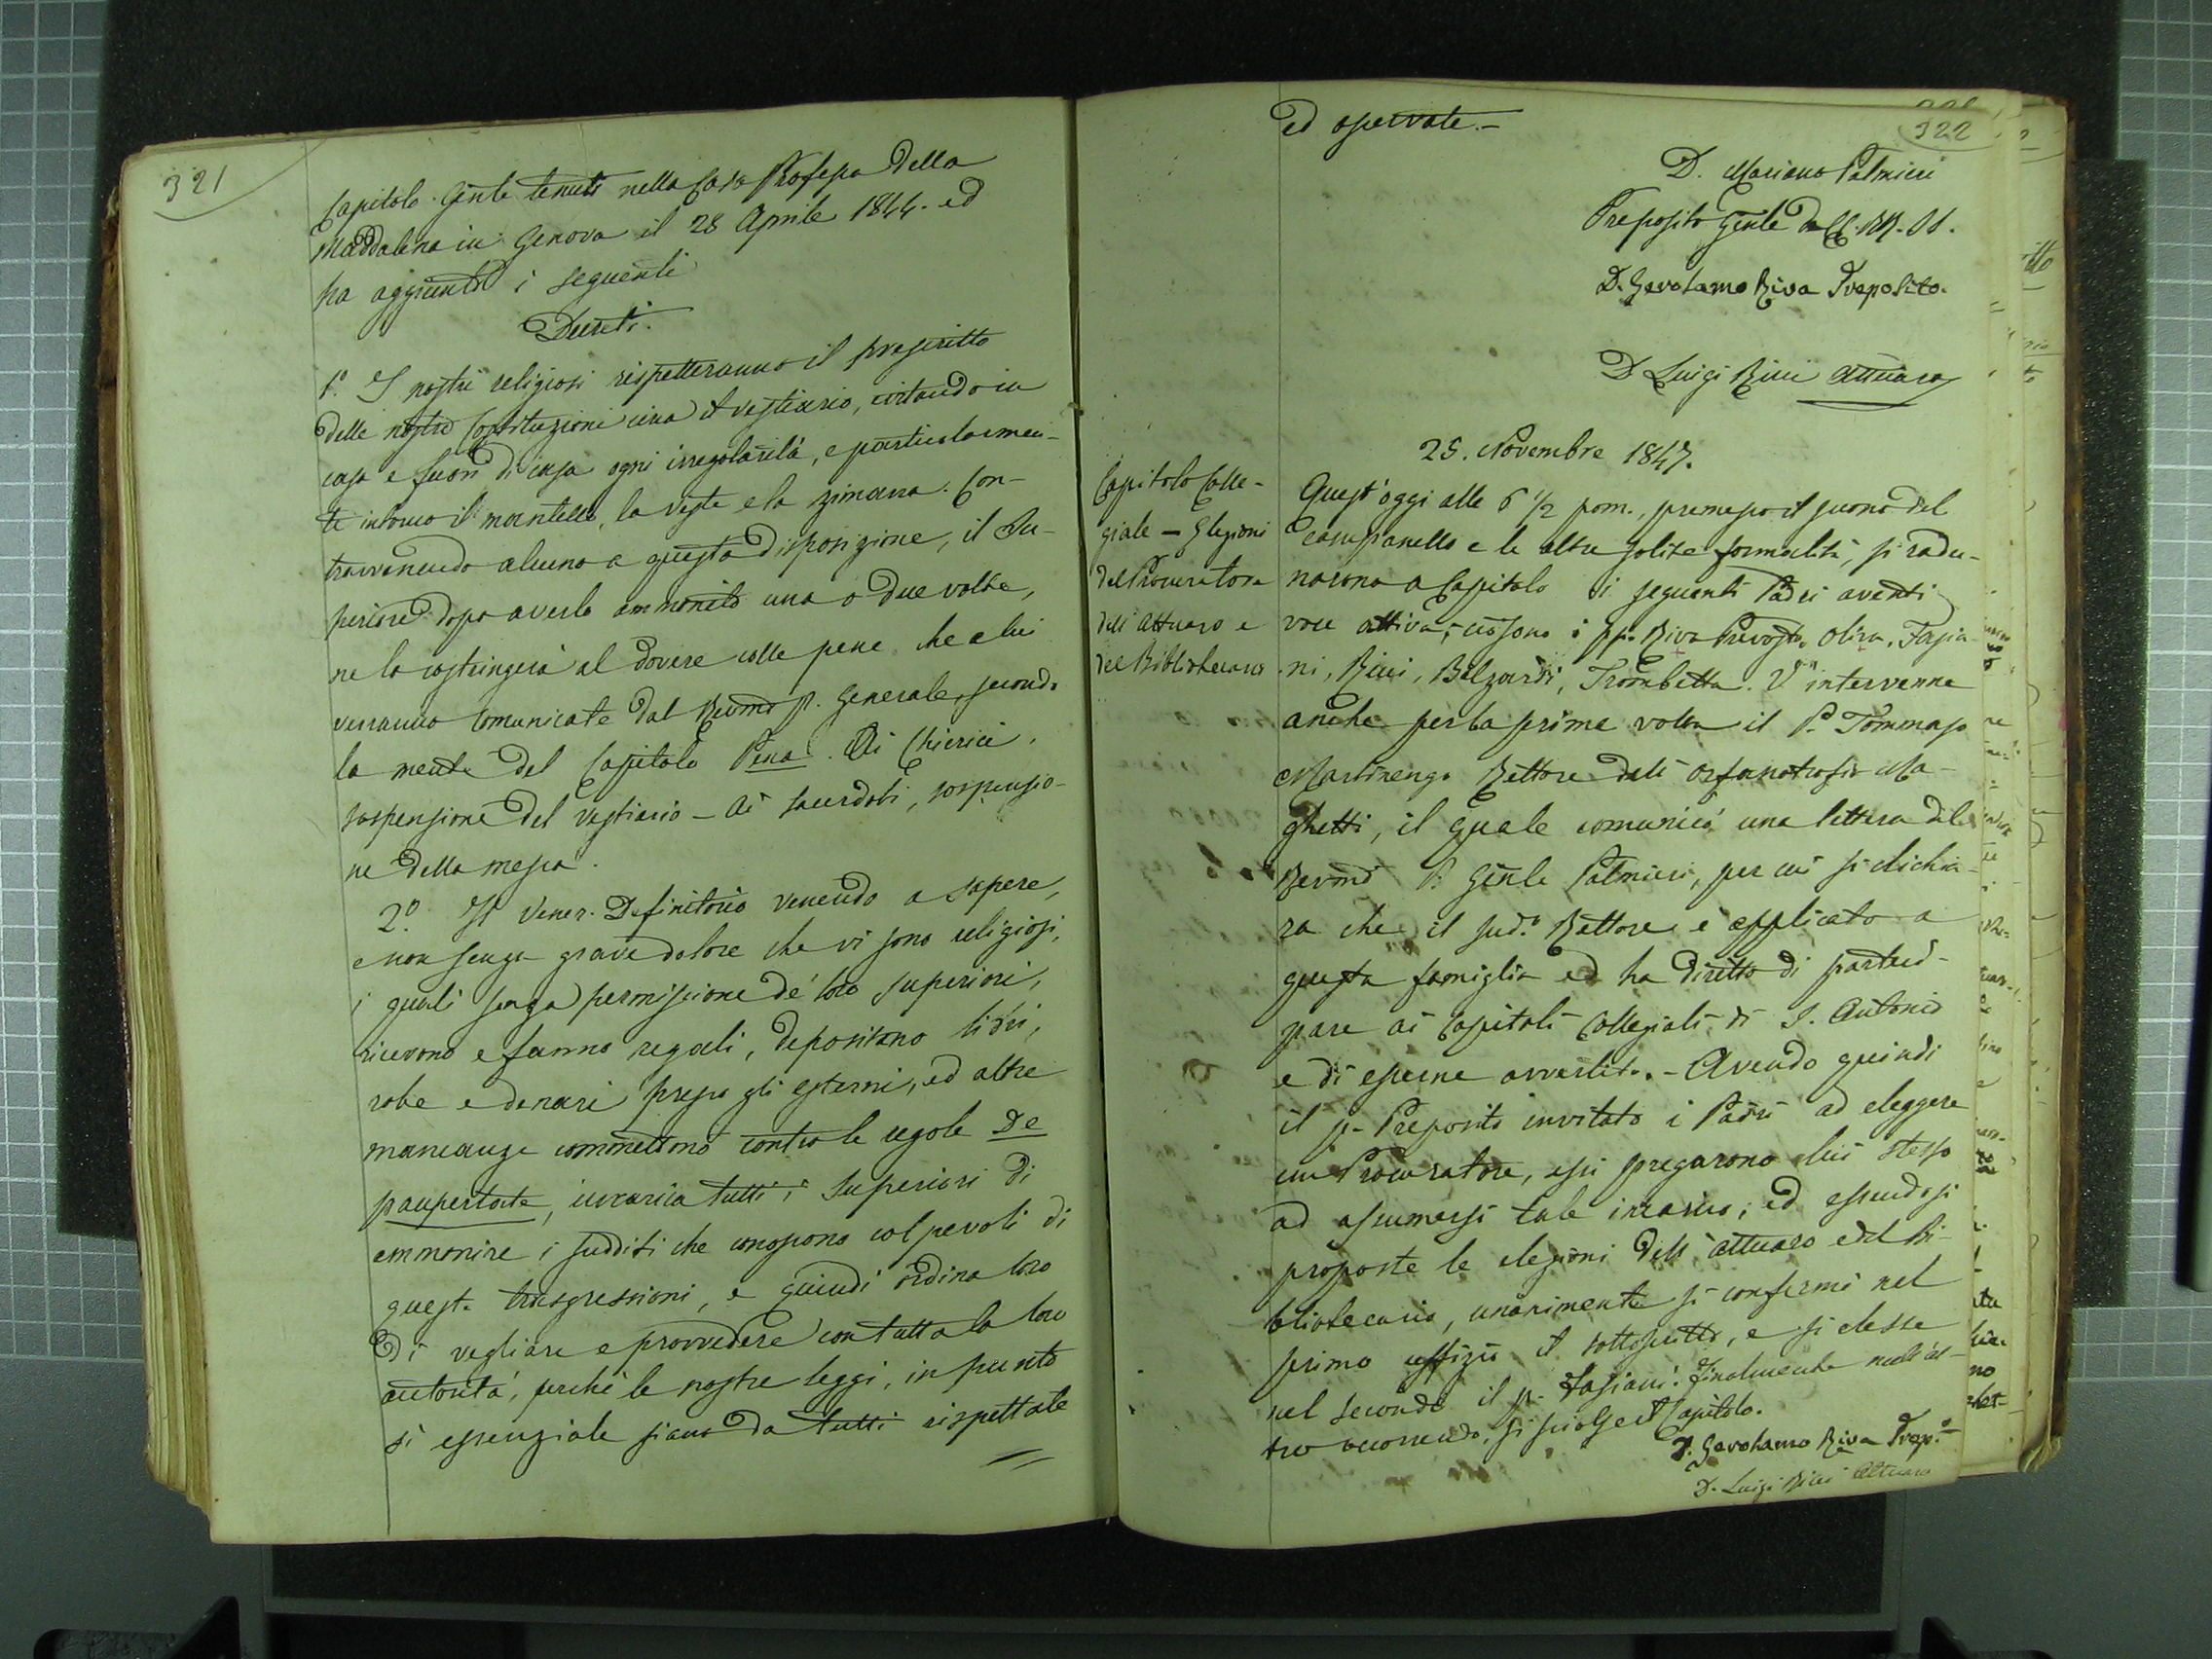 321
Capitolo Gĕnle tenuto nella Casa Professa della
Maddalena in Genova il 28 Aprile 1844. ed
ha aggiunto i seguenti
Decreti.
1.º I nostri religiosi rispetteranno il prescritto
delle nostre Costituzioni circa il vestiario, evitando in
casa e fuori di casa ogni irregolarità, e particolarmen-
te intorno il mantello, la veste e la zimarra. Con-
travvenendo alcuno a questa disposizione, il Su-
periore dopo averlo ammonito una o due volte,
ne lo costringerà al dovere colle pene che a lui
verranno comunicate dal Revmo P. Generale, secondo
la mente del Capitolo Pena. Ai Chierici,
sospensione del vestiario - Ai sacerdoti, sospensio-
ne della messa.
2.º Il Vener. Definitorio venendo a sapere,
e non senza grave dolore che vi sono religiosi,
i quali senza permissione de' loro superiori,
ricevono e fanno regali, depositano libri,
robe e denari presso gli esterni, ed altre
mancanze commettono contro le regole De
paupertate, incarica tutti i Superiori di
ammonire i sudditi che conoscono colpevoli di
queste trasgressioni, e quindi ordina loro
di vegliare e provvedere con tutta la loro
autorità, perchè le nostre leggi, in punto
sì essenziale siano da tutti rispettate
322
ed osservate.-
D. Mariano Palmieri
Preposito Gĕnle de CC. RR. SS.
D. Gerolamo Riva Preposito.
D Luigi Ricci Attuaro
25. Novembre 1847.
Capitolo Colle-
giale - Elezioni
del Procuratore
dell' Attuaro e
del Bibliotecario
Quest'oggi alle 6 1/2 pom., premesso il suono del
campanello e le altre solite formalità, si radu-
narono a Capitolo i seguenti Padri aventi
voce attiva, cioè sono i pp. Riva Prevosto, Oliva, Fasia-
ni, Ricci, Balzardi, Trombetta. V' intervenne
anche per la prima volta il P. Tommaso
Martinengo Rettore dell' Orfanotrofio Ma-
ghetti, il quale comunicò una lettera del
Revmo P. Gĕnle Palmieri, per cui si dichia-
ra che il sud.º Rettore è applicato a
questa famiglia ed ha diritto di parteci-
pare ai Capitoli Collegiali di S. Antonio
e di esserne avvertito. - Avendo quindi
il p. Preposito invitato i Padri ad eleggere
un Procuratore, essi pregarono lui stesso
ad assumersi tale incarico; ed essendosi
proposte le elezioni dell' attuaro e del Bi-
bliotecario, unanimente si confermò nel
primo uffizio il sottoscritto, e si elesse
nel secondo il p. Fasiani. Finalmente null' al-
tro occorrendo, si sciolse il Capitolo.
D. Gerolamo Riva Prep.º
D. Luigi Ricci Attuaro